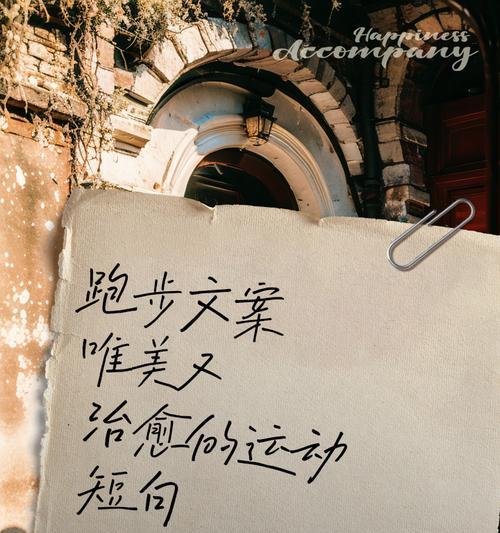 Happiness
Accompany
跑步文案
唯美又
治愈的运动
短句